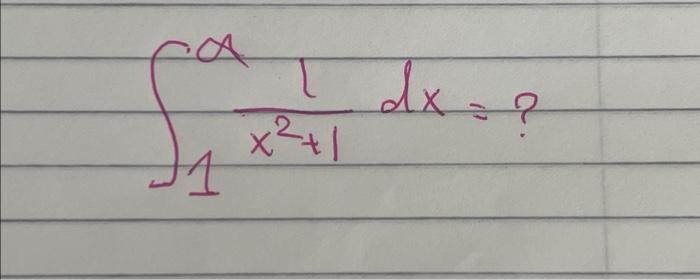 ∫₁^α 1/(x²+1) dx = ?